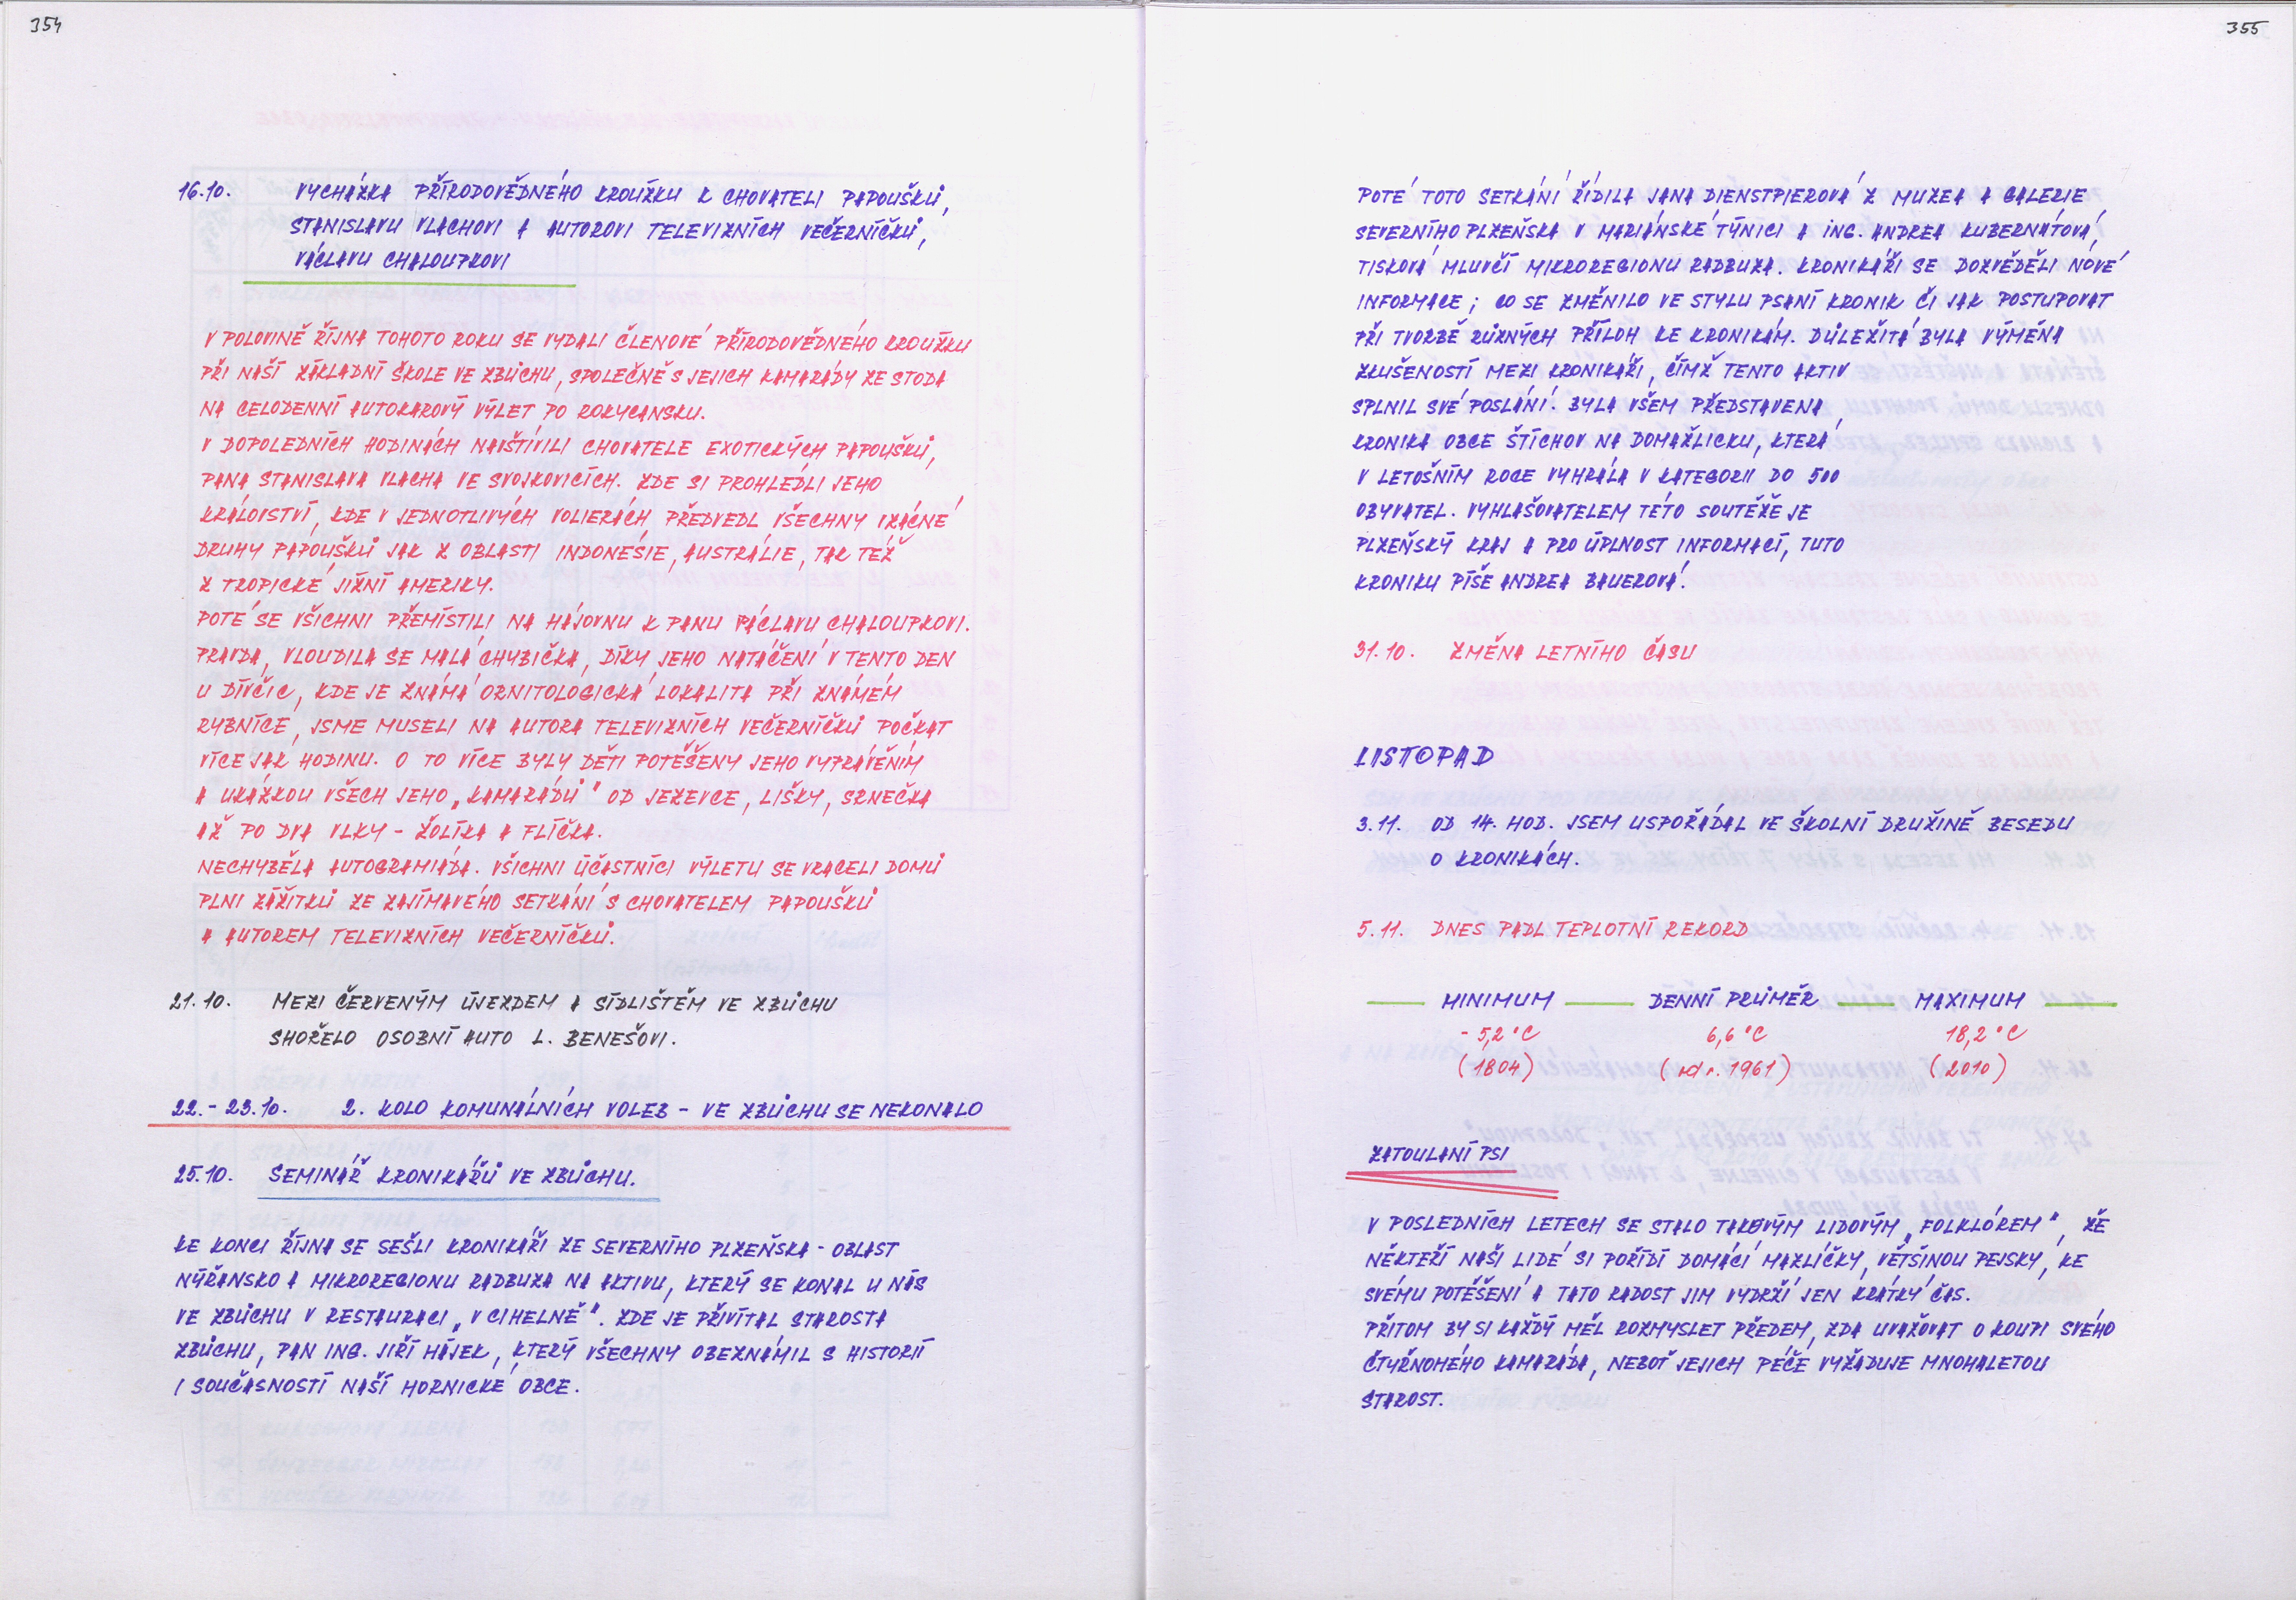 354
16.10. VYCHÁZKA PŘÍRODOVĚDNÉHO KROUŽKU K CHOVATELI PAPOUŠKŮ,
STANISLAVU VLACHOVI A AUTOROVI TELEVIZNÍCH VEČERNÍČKŮ,
VÁCLAVU CHALOUPKOVI
V POLOVINĚ ŘÍJNA TOHOTO ROKU SE VYDALI ČLENOVÉ PŘÍRODOVĚDNÉHO KROUŽKU
PŘI NAŠÍ ZÁKLADNÍ ŠKOLE VE ZBŮCHU, SPOLEČNĚ S JEJICH KAMARÁDY ZE STODA
NA CELODENNÍ AUTOKAROVÝ VÝLET PO ROKYCANSKU.
V DOPOLEDNÍCH HODINÁCH NAVŠTÍVILI CHOVATELE EXOTICKÝCH PAPOUŠKŮ,
PANA STANISLAVA VLACHA VE SVOJKOVICÍCH. ZDE SI PROHLÉDLI JEHO
KRÁLOVSTVÍ, KDE V JEDNOTLIVÝCH VOLIERÁCH PŘEDVEDL VŠECHNY VZÁCNÉ
DRUHY PAPOUŠKŮ JAK Z OBLASTI INDONÉSIE, AUSTRÁLIE, TAK TÉŽ
Z TROPICKÉ JIŽNÍ AMERIKY.
POTÉ SE VŠICHNI PŘEMÍSTILI NA HÁJOVNU K PANU VÁCLAVU CHALOUPKOVI.
PRAVDA, VLOUDILA SE MALÁ CHYBIČKA, DÍKY JEHO NATÁČENÍ V TENTO DEN
U DÍVČIC, KDE JE ZNÁMÁ ORNITOLOGICKÁ LOKALITA PŘI ZNÁMÉM
RYBNÍCE, JSME MUSELI NA AUTORA TELEVIZNÍCH VEČERNÍČKŮ POČKAT
VÍCE JAK HODINU. O TO VÍCE BYLY DĚTI POTĚŠENY JEHO VYPRÁVĚNÍM
A UKÁZKOU VŠECH JEHO „KAMARÁDŮ" OD JEZEVCE, LIŠKY, SRNEČKA
AŽ PO DVA VLKY - ŽOLÍKA A FLÍČKA.
NECHYBĚLA AUTOGRAMIÁDA. VŠICHNI ÚČASTNÍCI VÝLETU SE VRACELI DOMŮ
PLNI ZÁŽITKŮ ZE ZAJÍMAVÉHO SETKÁNÍ S CHOVATELEM PAPOUŠKŮ
A AUTOREM TELEVIZNÍCH VEČERNÍČKŮ.
21.10. MEZI ČERVENÝM ÚJEZDEM A SÍDLIŠTĚM VE ZBŮCHU
SHOŘELO OSOBNÍ AUTO L. BENEŠOVI.
22.-23.10. 2. KOLO KOMUNÁLNÍCH VOLEB - VE ZBŮCHU SE NEKONALO
25.10. SEMINÁŘ KRONIKÁŘŮ VE ZBŮCHU.
KE KONCI ŘÍJNA SE SEŠLI KRONIKÁŘI ZE SEVERNÍHO PLZEŇSKA - OBLAST
NÝŘANSKO A MIKROREGIONU RADBUZA NA AKTIVU, KTERÝ SE KONAL U NÁS
VE ZBŮCHU V RESTAURACI „V CIHELNĚ". ZDE JE PŘIVÍTAL STAROSTA
ZBŮCHU, PAN ING. JIŘÍ HÁJEK, KTERÝ VŠECHNY OBEZNÁMIL S HISTORIÍ
I SOUČASNOSTÍ NAŠÍ HORNICKÉ OBCE.
355
POTÉ TOTO SETKÁNÍ ŘÍDILA JANA DIENSTPIEROVÁ Z MUZEA A GALERIE
SEVERNÍHO PLZEŇSKA V MARIÁNSKÉ TÝNICI A ING. ANDREA KUBERNÁTOVÁ,
TISKOVÁ MLUVČÍ MIKROREGIONU RADBUZA. KRONIKÁŘI SE DOZVĚDĚLI NOVÉ
INFORMACE; CO SE ZMĚNILO VE STYLU PSANÍ KRONIK ČI JAK POSTUPOVAT
PŘI TVORBĚ RŮZNÝCH PŘÍLOH KE KRONIKÁM. DŮLEŽITÁ BYLA VÝMĚNA
ZKUŠENOSTÍ MEZI KRONIKÁŘI, ČÍMŽ TENTO AKTIV
SPLNIL SVÉ POSLÁNÍ. BYLA VŠEM PŘEDSTAVENA
KRONIKA OBCE ŠTÍCHOV NA DOMAŽLICKU, KTERÁ
V LETOŠNÍM ROCE VYHRÁLA V KATEGORII DO 500
OBYVATEL. VYHLAŠOVATELEM TÉTO SOUTĚŽE JE
PLZEŇSKÝ KRAJ A PRO ÚPLNOST INFORMACÍ, TUTO
KRONIKU PÍŠE ANDREA BAUEROVÁ.
31.10. ZMĚNA LETNÍHO ČASU
LISTOPAD
3.11. OD 14. HOD. JSEM USPOŘÁDAL VE ŠKOLNÍ DRUŽINĚ BESEDU
O KRONIKÁCH.
5.11. DNES PADL TEPLOTNÍ REKORD
MINIMUM DENNÍ PRŮMĚR MAXIMUM
-5,2°C 6,6°C 18,2°C
(1804) (od r. 1961) (2010)
ZATOULANÍ PSI
V POSLEDNÍCH LETECH SE STALO TAKOVÝM LIDOVÝM „FOLKLÓREM", ŽE
NĚKTEŘÍ NAŠI LIDÉ SI POŘÍDÍ DOMÁCÍ MAZLÍČKY, VĚTŠINOU PEJSKY, KE
SVÉMU POTĚŠENÍ A TATO RADOST JIM VYDRŽÍ JEN KRÁTKÝ ČAS.
PŘITOM BY SI KAŽDÝ MĚL ROZMYSLET PŘEDEM, ZDA UVAŽOVAT O KOUPI SVÉHO
ČTYŘNOHÉHO KAMARÁDA, NEBOŤ JEJICH PÉČE VYŽADUJE MNOHALETOU
STAROST.